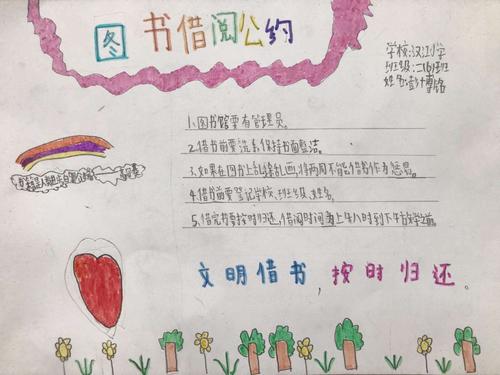 图书借阅公约
学校:汉江小学
班级:二(6)班
姓名:彭博铭
1.图书馆要有管理员。
2.借书前要洗手,保持书面整洁。
3.如果在图书上乱涂乱画,将两周不能借书作为惩罚。
4.借书前要登记学校、班级、姓名。
5.借完书要按时归还,借阅时间为上午八时到下午放学之前。
文明借书,按时归还。